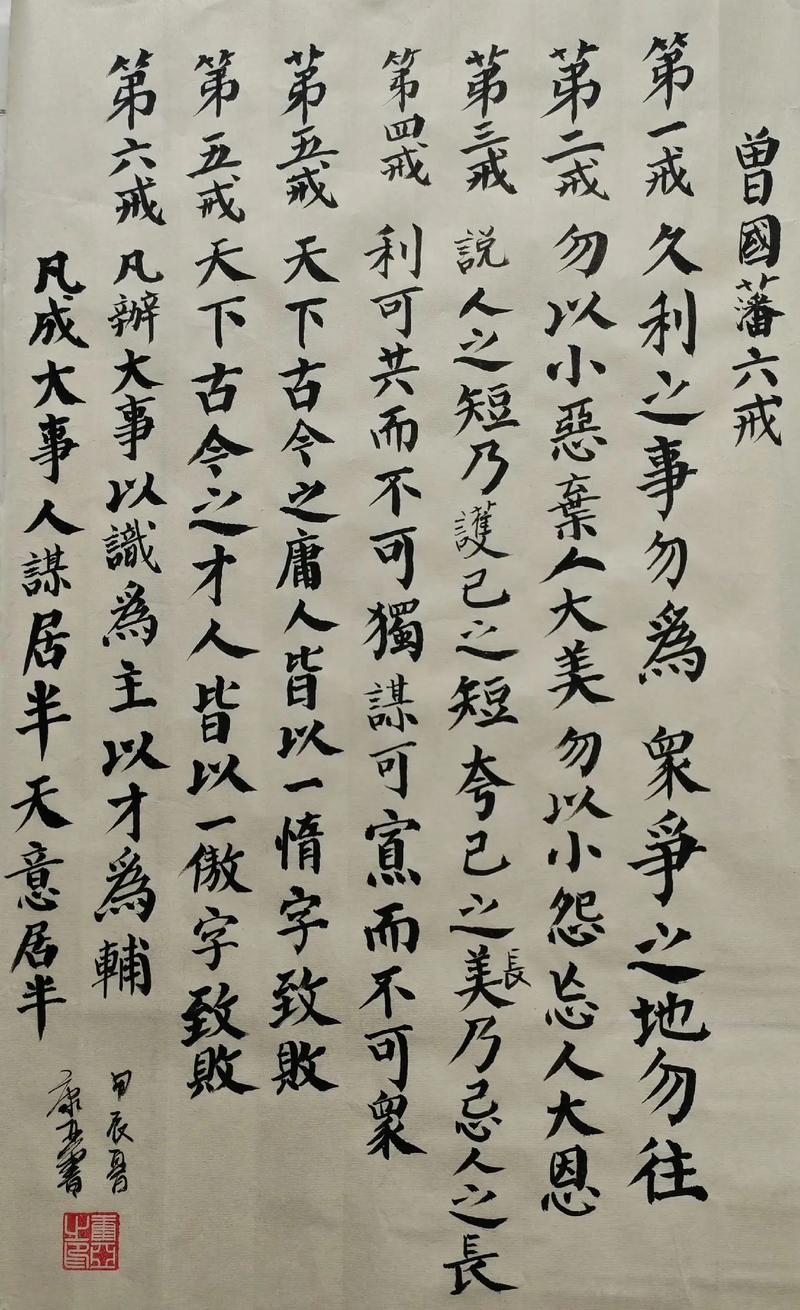 曾國藩六戒
第一戒 久利之事勿為 衆爭之地勿往
第二戒 勿以小惡棄人大美 勿以小怨忘人大恩
第三戒 說人之短乃護己之短 夸己之美長乃忌人之長
第四戒 利可共而不可獨 謀可寡而不可衆
第五戒 天下古今之庸人皆以一惰字致敗
第五戒 天下古今之才人皆以一傲字致敗
第六戒 凡辦大事以識為主以才為輔
凡成大事人謀居半天意居半
甲辰
康 書